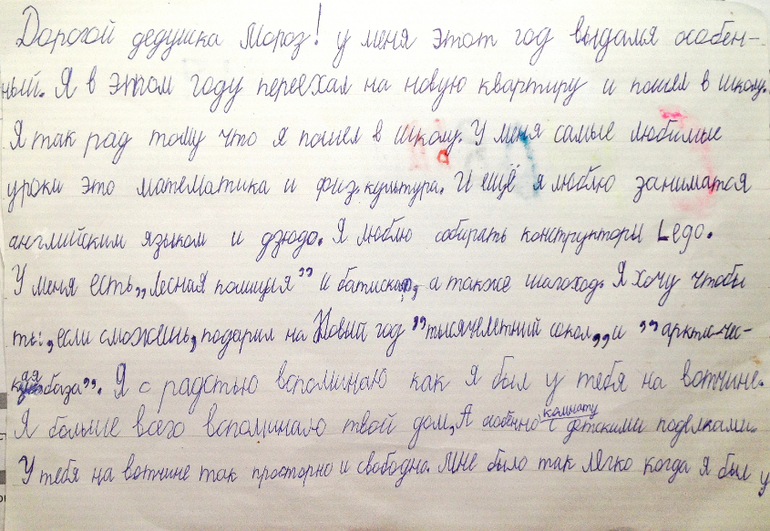 Дорогой дедушка Мороз! у меня этот год выдался особен-
ный. Я в этом году переехал на новую квартиру и пошел в школу.
Я так рад тому что я пошел в школу. У меня самые любимые
уроки это математика и физ.культура. И ещё я люблю заниматся
английским языком и дзюдо. Я люблю собирать конструкторы Lego.
У меня есть „Лесная полиция” и батискаф, а также шагоход. Я хочу чтобы
ты, если сможешь, подарил на Новый год ”тысячелетний сокол„ и ”арктичес-
кая база”. Я с радостью вспоминаю как я был у тебя на вотчине.
Я больше всего вспоминаю твой дом, А особенно комнату с детскими поделками.
У тебя на вотчине так просторно и свободна. Мне было так легко когда я был у